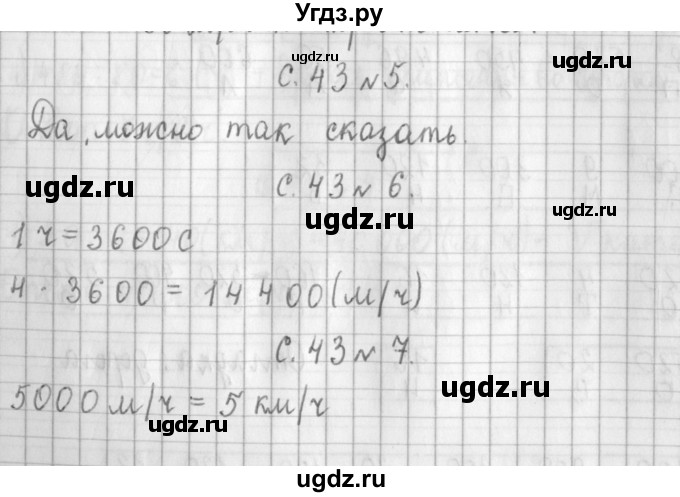 Угдз.ру
с. 43 № 5.
ugdz.ru
Да, можно так сказать.
ugdz.ru
с. 43 № 6.
ugdz.ru
ugdz.ru
1 ч = 3600 с
4 · 3600 = 14 400 (м/ч)
с. 43 № 7.
ugdz.ru
5000 м/ч = 5 км/ч
ugdz.ru
ugdz.ru